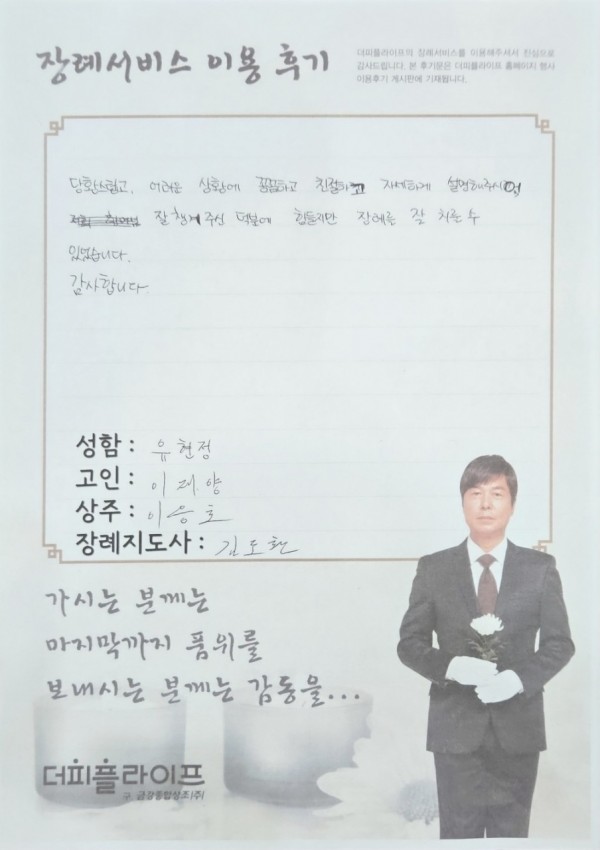 장례서비스 이용 후기
더피플라이프의 장례서비스를 이용해주셔서 진심으로
감사드립니다. 본 후기문은 더피플라이프 홈페이지 행사
이용후기 게시판에 기재됩니다.
당황스럽고, 어려운 상황에 꼼꼼하고 친절하고 자세하게 설명해주시며
잘 챙겨주신 덕분에 힘들지만 장례를 잘 치룰 수
있었습니다.
감사합니다.
성함 : 유현정
고인 : 이재양
상주 : 이응호
장례지도사 : 김도환
가시는 분께는
마지막까지 품위를
보내시는 분께는 감동을...
더피플라이프
구. 금강종합상조(주)